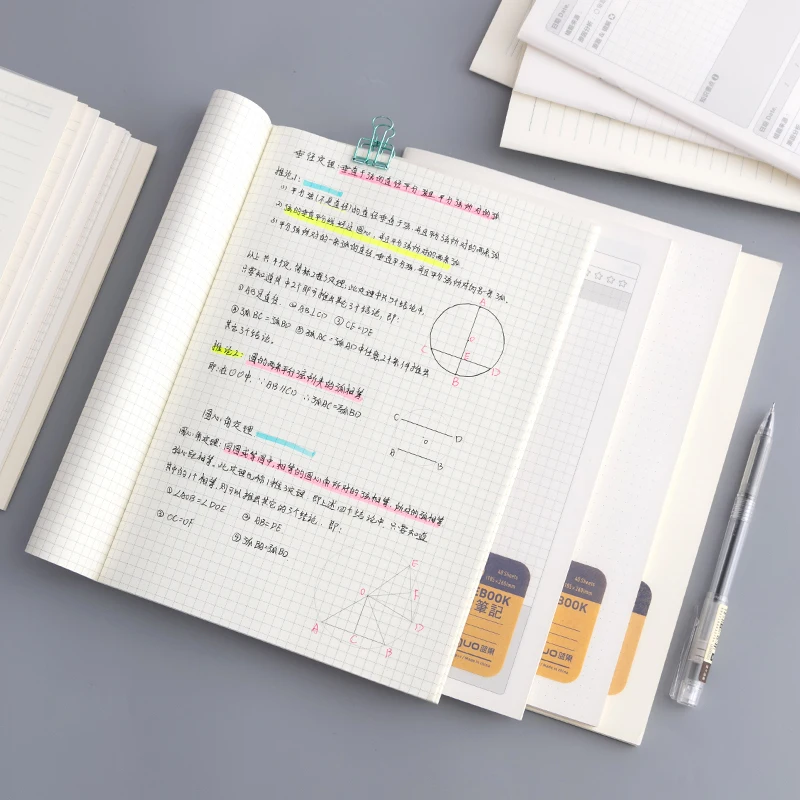 垂径定理:垂直于弦的直径平分弦且平分弦所对的弧
推论1:
(1)平分弦(不是直径)的直径垂直于弦,并且平分弦所对的两条弧
(2)弦的垂直平分线经过圆心,并且平分弦所对的两条弧
(3)平分弦所对的一条弧的直径,垂直平分弦,并且平分弦所对的另一条弧。
以上共4个定理,简称2推3定理:此定理中共5个结论中,
只要知道其中2个即可推出其它3个结论,即:
①AB是直径 ②AB⊥CD ③CE=DE
④弧BC=弧BD ⑤弧AC=弧AD中任意2个条件推出
其它3个结论。
推论2:圆的两条平行弦所夹的弧相等
即:在⊙O中,∵AB∥CD ∴弧AC=弧BD
圆心角定理
圆心角定理:同圆或等圆中,相等的圆心角所对的弦相等,所对的弧相等
弦心距相等。此定理也称1推3定理,即上述四个结论中,只要知道
其中的1个相等,则可以推出其它的3个结论,即:
①∠AOB=∠DOE ② AB=DE
③ OC=OF
④弧BA=弧BD
A
O
C
E
D
B
C
D
O
A
B
E
O
F
A
C
B
D
40 Sheets
EBOOK
筆記
UO 盛果
40 Sheets
BOOK
UO 盛果
Date.
Date.